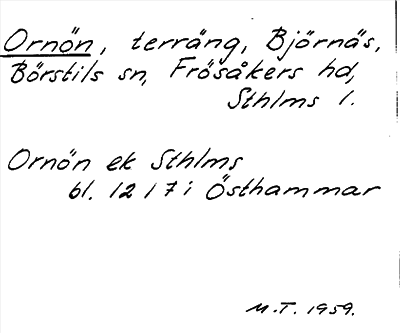 Ornön, terräng, Björnäs,
Börstils sn, Frösåkers hd,
Sthlms l.
Ornön ek Sthlms
bl. 12 17 i Östhammar
M.T. 1959.